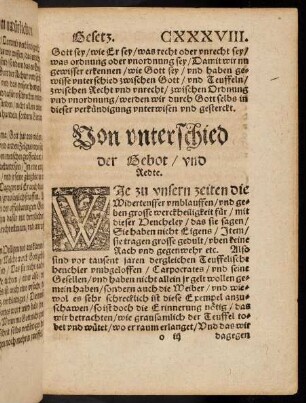 Gesetz. CXXXVIII.
Gott sey / wie Er sey / was recht oder vnrecht sey /
was ordnung oder vnordnung sey / Damit wir nu
gewisser erkennen / wie Gott sey / vnd haben ge-
wisse vnterschied zwischen Gott / vnd Teuffeln /
zwischen Recht vnd vnrecht / zwischen Ordnung
vnd vnordnung / werden wir durch Gott selbs in
dieser verkündigung vnterwisen vnd gesterckt.
Von vnterschied
der Gebot / vnd
Redte.
WIe zu vnsern zeiten die
Widerteuffer vmblauffen / vnd ge-
ben grosse werckheiligkeit für / mit
dieser Heucheley / das sie sagen /
Sie haben nicht Eigens / Item /
sie tragen grosse gedult / vben keine
Rach vnd gegenwehr etc. Also
sind vor tausent jaren dergleichen Teuffelische
heuchler vmbgeloffen / Carpocrates / vnd seine
Gesellen / vnd haben nicht allein jr gelt wollen ge-
mein haben / sondern auch die Weiber / vnd wie-
wol es sehr schrecklich ist diese Exempel anzu-
schawen / so ist doch die Erinnerung nötig / das
wir betrachten / wie grausamlich der Teuffel to-
bet vnd wütet / wo er raum erlanget / Vnd das wir
o iij dagegen